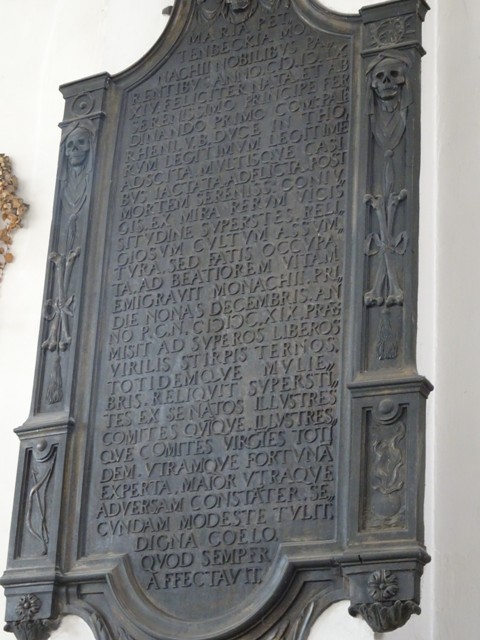 MARIA PET
TENBECKIA MO
NACHII NOBILIBVS PA
RENTIBVS ANNO
FELICITER NATA ET AB
SERENISSIMO PRINCIPE FER
DINANDO PRIMO COM: PAL:
RHENI V.B. DVCE IN THO
RVM LEGITIMVM LEGITIME
ADSCITA MVLTISQVE CASI
BVS IACTATA ADFLICTA POST
MORTEM SERENISS: CONIV
GIS EX MIRA RERVM VICIS
SITVDINE SVPERSTES, RELI
GIOSVM CVLTVM ASSVM
TVRA, SED FATIS OCCVPA
TA, AD BEATIOREM VITAM
EMIGRAVIT MONACHII PRI
DIE NONAS DECEMBRIS. AN
NO P.C.N. CIↃIↃCXIX. PRÆ
MISIT AD SVPEROS LIBEROS
VIRILIS STIRPIS TERNOS,
TOTIDEMQVE MVLIE
BRIS. RELIQVIT SVPERSTI
TES EX SE NATOS ILLVSTRES
COMITES QVIQVE, ILLVSTRES
QVE COMITES VIRGĪES TOTI
DEM. VTRAMQVE FORTVNA
EXPERTA, MAIOR VTRAQVE
ADVERSAM CONSTĀTER, SE
CVNDAM MODESTE TVLIT.
DIGNA COELO,
QVOD SEMPER
AFFECTAVIT.